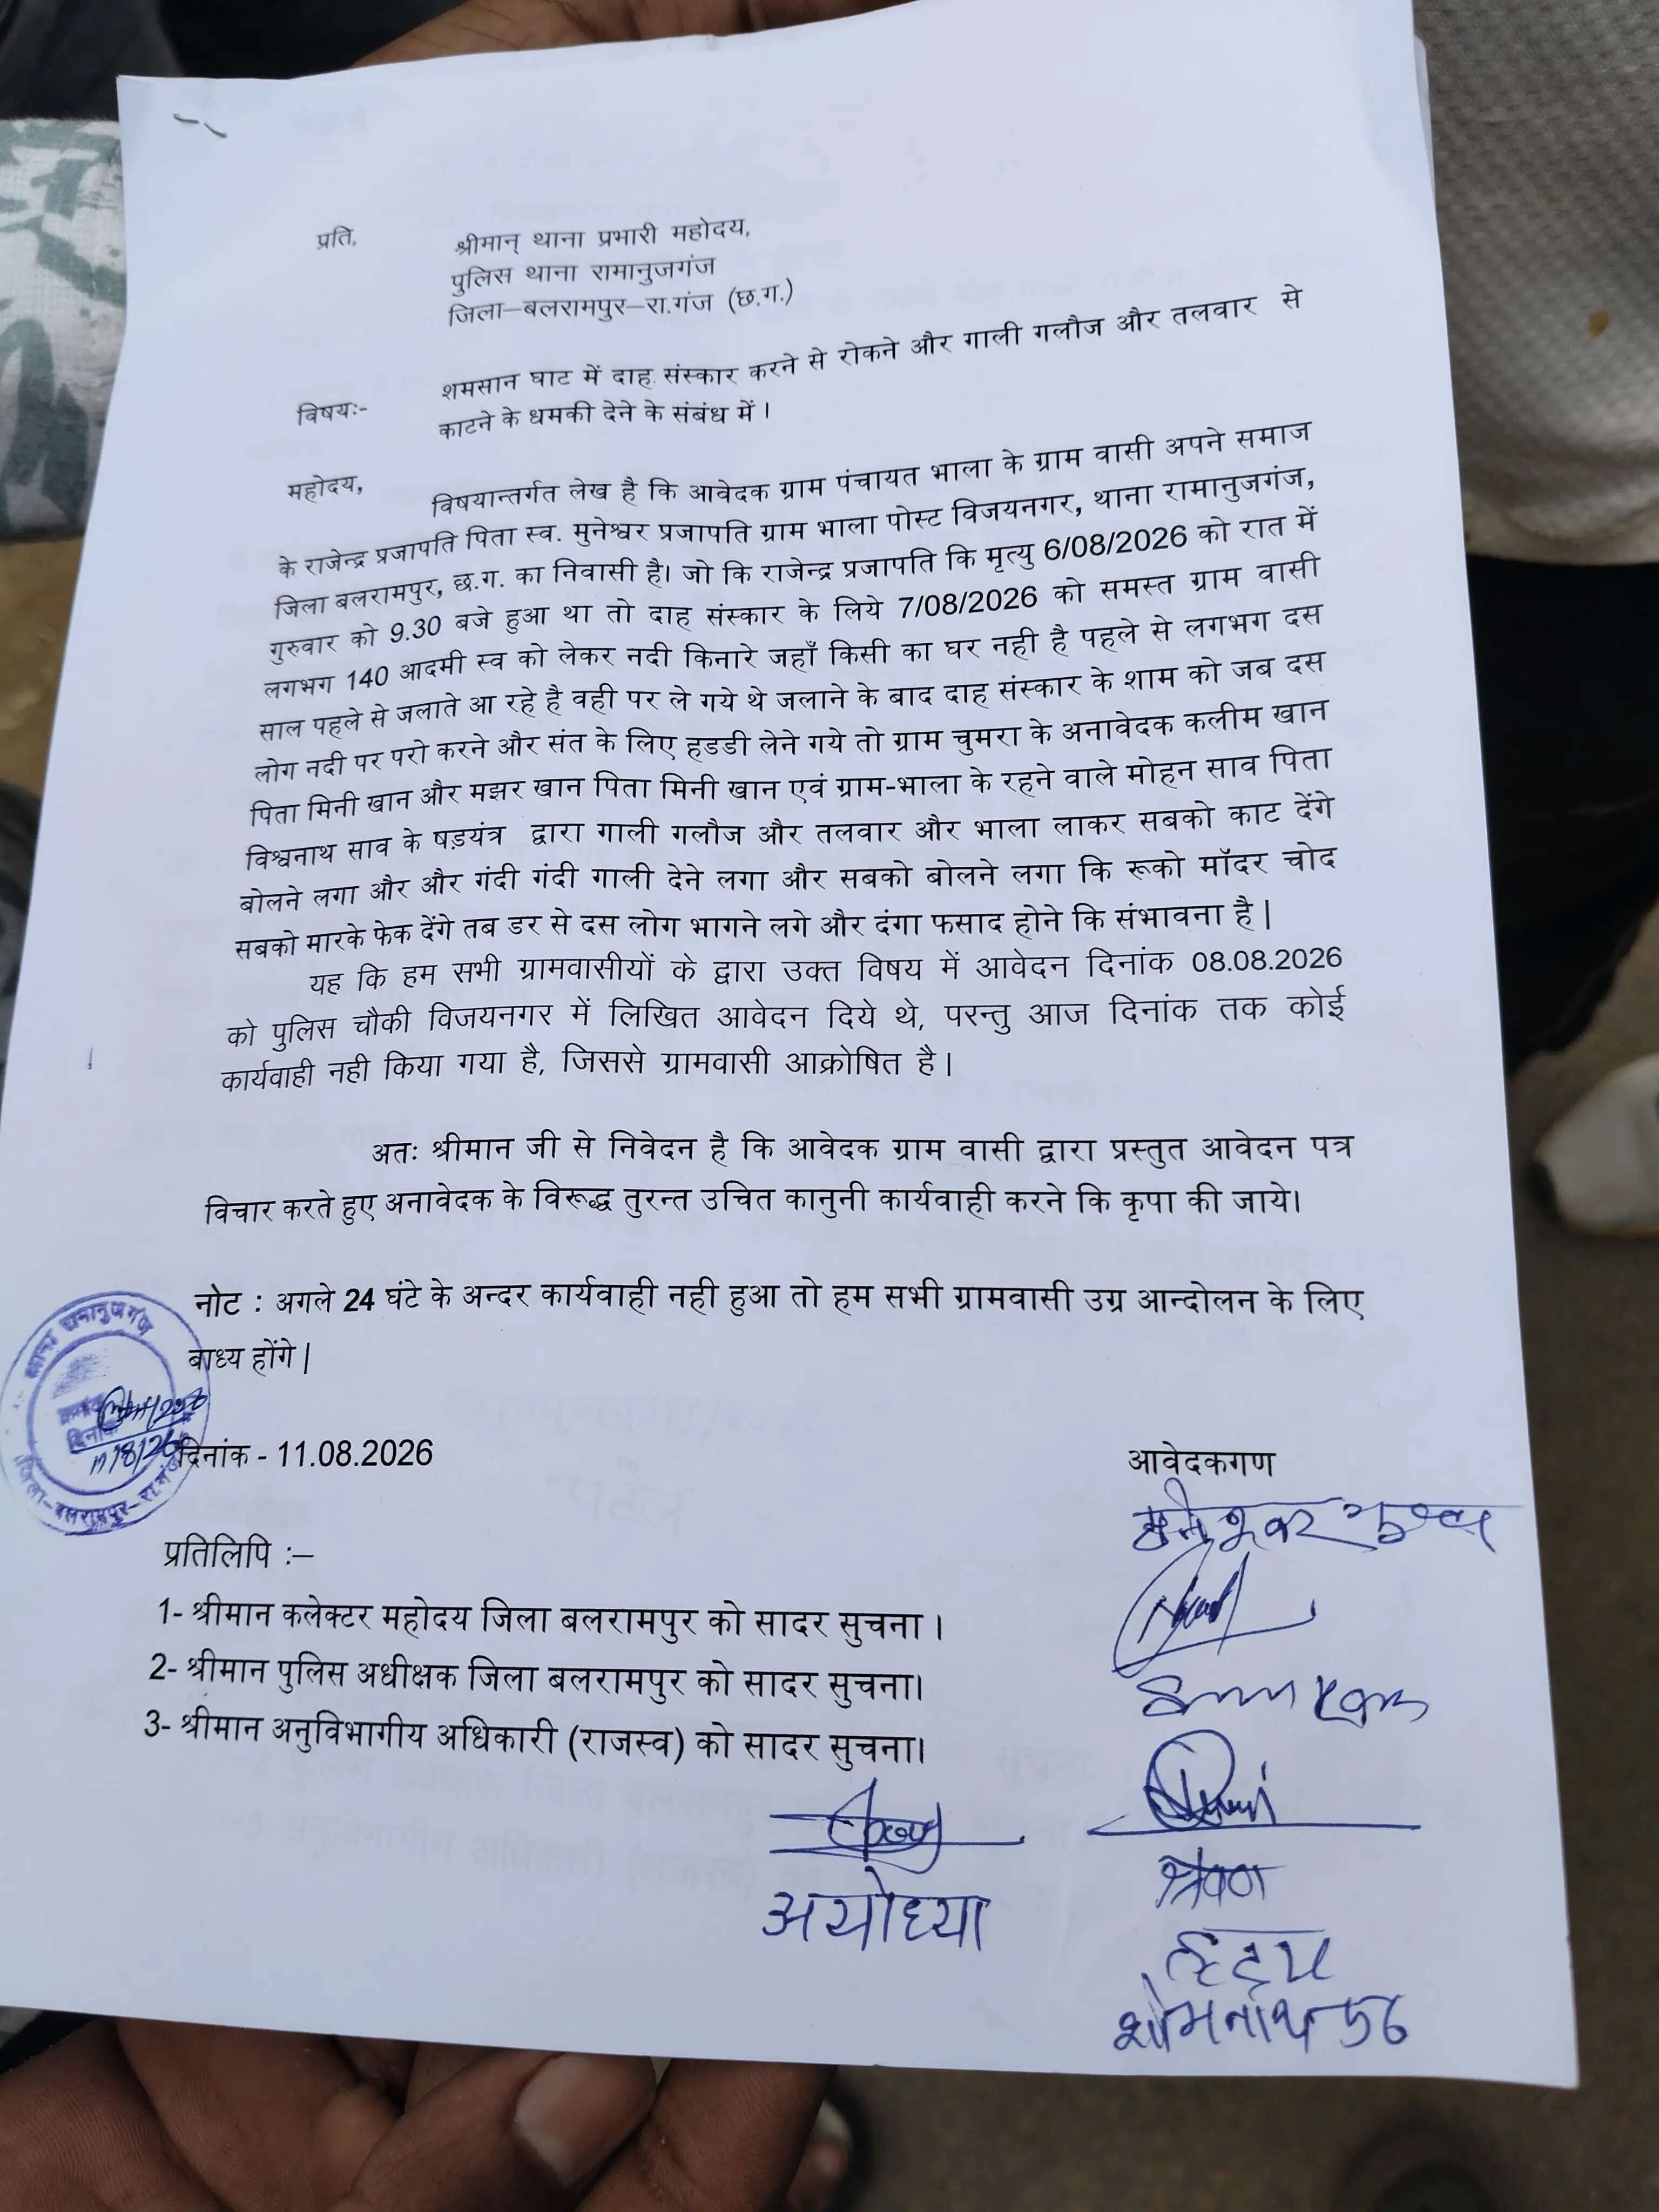 प्रति,
श्रीमान् थाना प्रभारी महोदय,
पुलिस थाना रामानुजगंज
जिला–बलरामपुर–रा.गंज (छ.ग.)
विषयः-
शमसान घाट में दाह संस्कार करने से रोकने और गाली गलौज और तलवार से
काटने के धमकी देने के संबंध में ।
महोदय,
विषयान्तर्गत लेख है कि आवेदक ग्राम पंचायत भाला के ग्राम वासी अपने समाज
के राजेन्द्र प्रजापति पिता स्व. मुनेश्वर प्रजापति ग्राम भाला पोस्ट विजयनगर, थाना रामानुजगंज,
जिला बलरामपुर, छ.ग. का निवासी है। जो कि राजेन्द्र प्रजापति कि मृत्यु 6/08/2026 को रात में
गुरुवार को 9.30 बजे हुआ था तो दाह संस्कार के लिये 7/08/2026 को समस्त ग्राम वासी
लगभग 140 आदमी स्व को लेकर नदी किनारे जहाँ किसी का घर नही है पहले से लगभग दस
साल पहले से जलाते आ रहे है वही पर ले गये थे जलाने के बाद दाह संस्कार के शाम को जब दस
लोग नदी पर परो करने और संत के लिए हडडी लेने गये तो ग्राम चुमरा के अनावेदक कलीम खान
पिता मिनी खान और मझर खान पिता मिनी खान एवं ग्राम-भाला के रहने वाले मोहन साव पिता
विश्वनाथ साव के षड़यंत्र द्वारा गाली गलौज और तलवार और भाला लाकर सबको काट देंगे
बोलने लगा और और गंदी गंदी गाली देने लगा और सबको बोलने लगा कि रूको मॉदर चोद
सबको मारके फेक देंगे तब डर से दस लोग भागने लगे और दंगा फसाद होने कि संभावना है |
यह कि हम सभी ग्रामवासीयों के द्वारा उक्त विषय में आवेदन दिनांक 08.08.2026
को पुलिस चौकी विजयनगर में लिखित आवेदन दिये थे, परन्तु आज दिनांक तक कोई
कार्यवाही नही किया गया है, जिससे ग्रामवासी आक्रोषित है।
अतः श्रीमान जी से निवेदन है कि आवेदक ग्राम वासी द्वारा प्रस्तुत आवेदन पत्र
विचार करते हुए अनावेदक के विरूद्ध तुरन्त उचित कानुनी कार्यवाही करने कि कृपा की जाये।
नोट : अगले 24 घंटे के अन्दर कार्यवाही नही हुआ तो हम सभी ग्रामवासी उग्र आन्दोलन के लिए
बाध्य होंगे |
थाना रामानुजगंज
दिनांक
जिला–बलरामपुर–रा.गंज
दिनांक - 11.08.2026
आवेदकगण
प्रतिलिपि :–
1- श्रीमान कलेक्टर महोदय जिला बलरामपुर को सादर सुचना ।
2- श्रीमान पुलिस अधीक्षक जिला बलरामपुर को सादर सुचना।
3- श्रीमान अनुविभागीय अधिकारी (राजस्व) को सादर सुचना।
श्रवण
अयोध्या